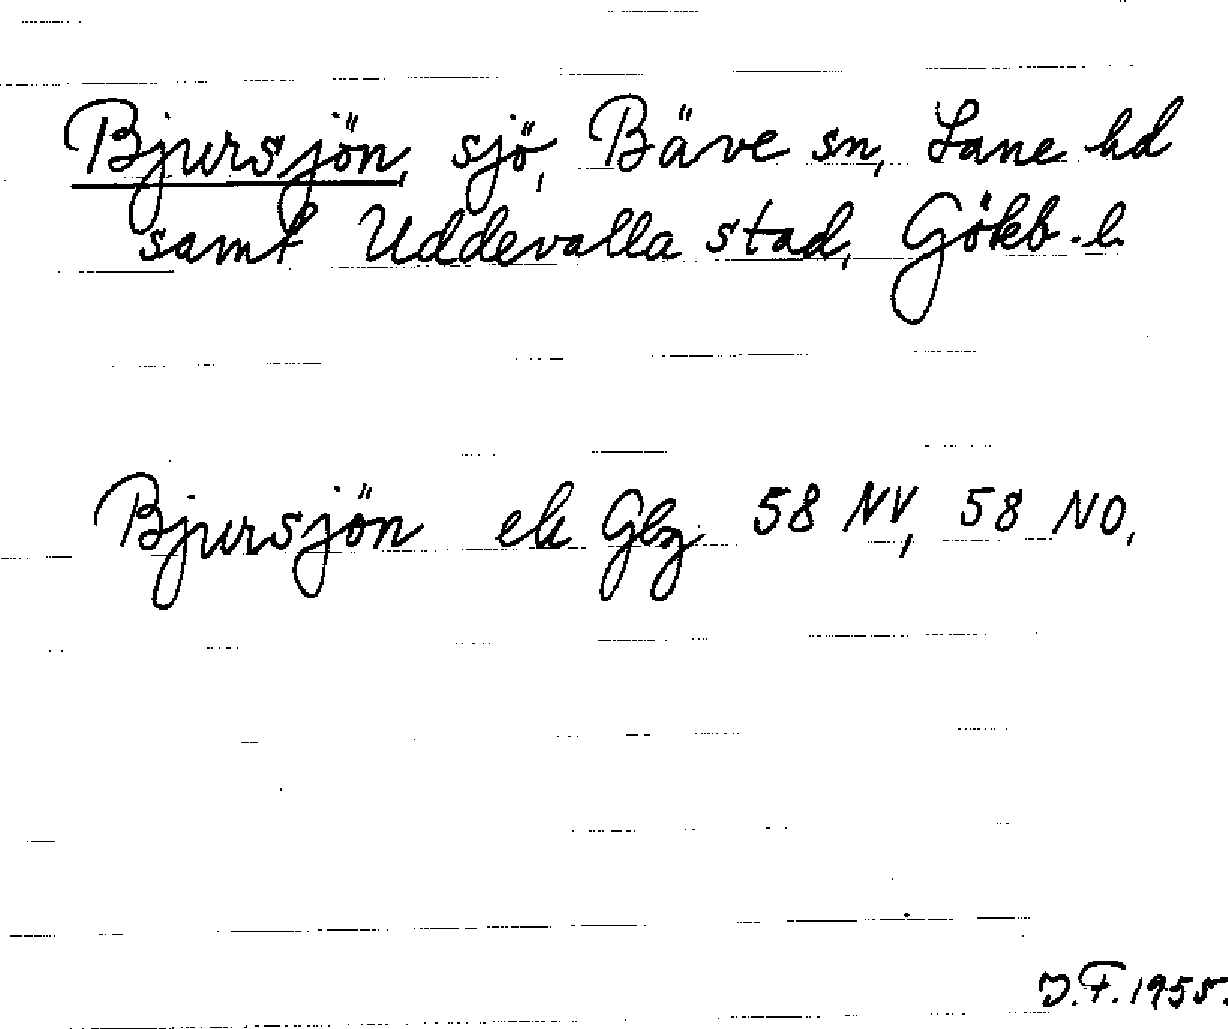 Bjursjön, sjö, Bäve sn, Lane hd
samt Uddevalla stad, Gökb. l.
Bjursjön ek Gbg 58 NV, 58 NO,
J.F. 1955.